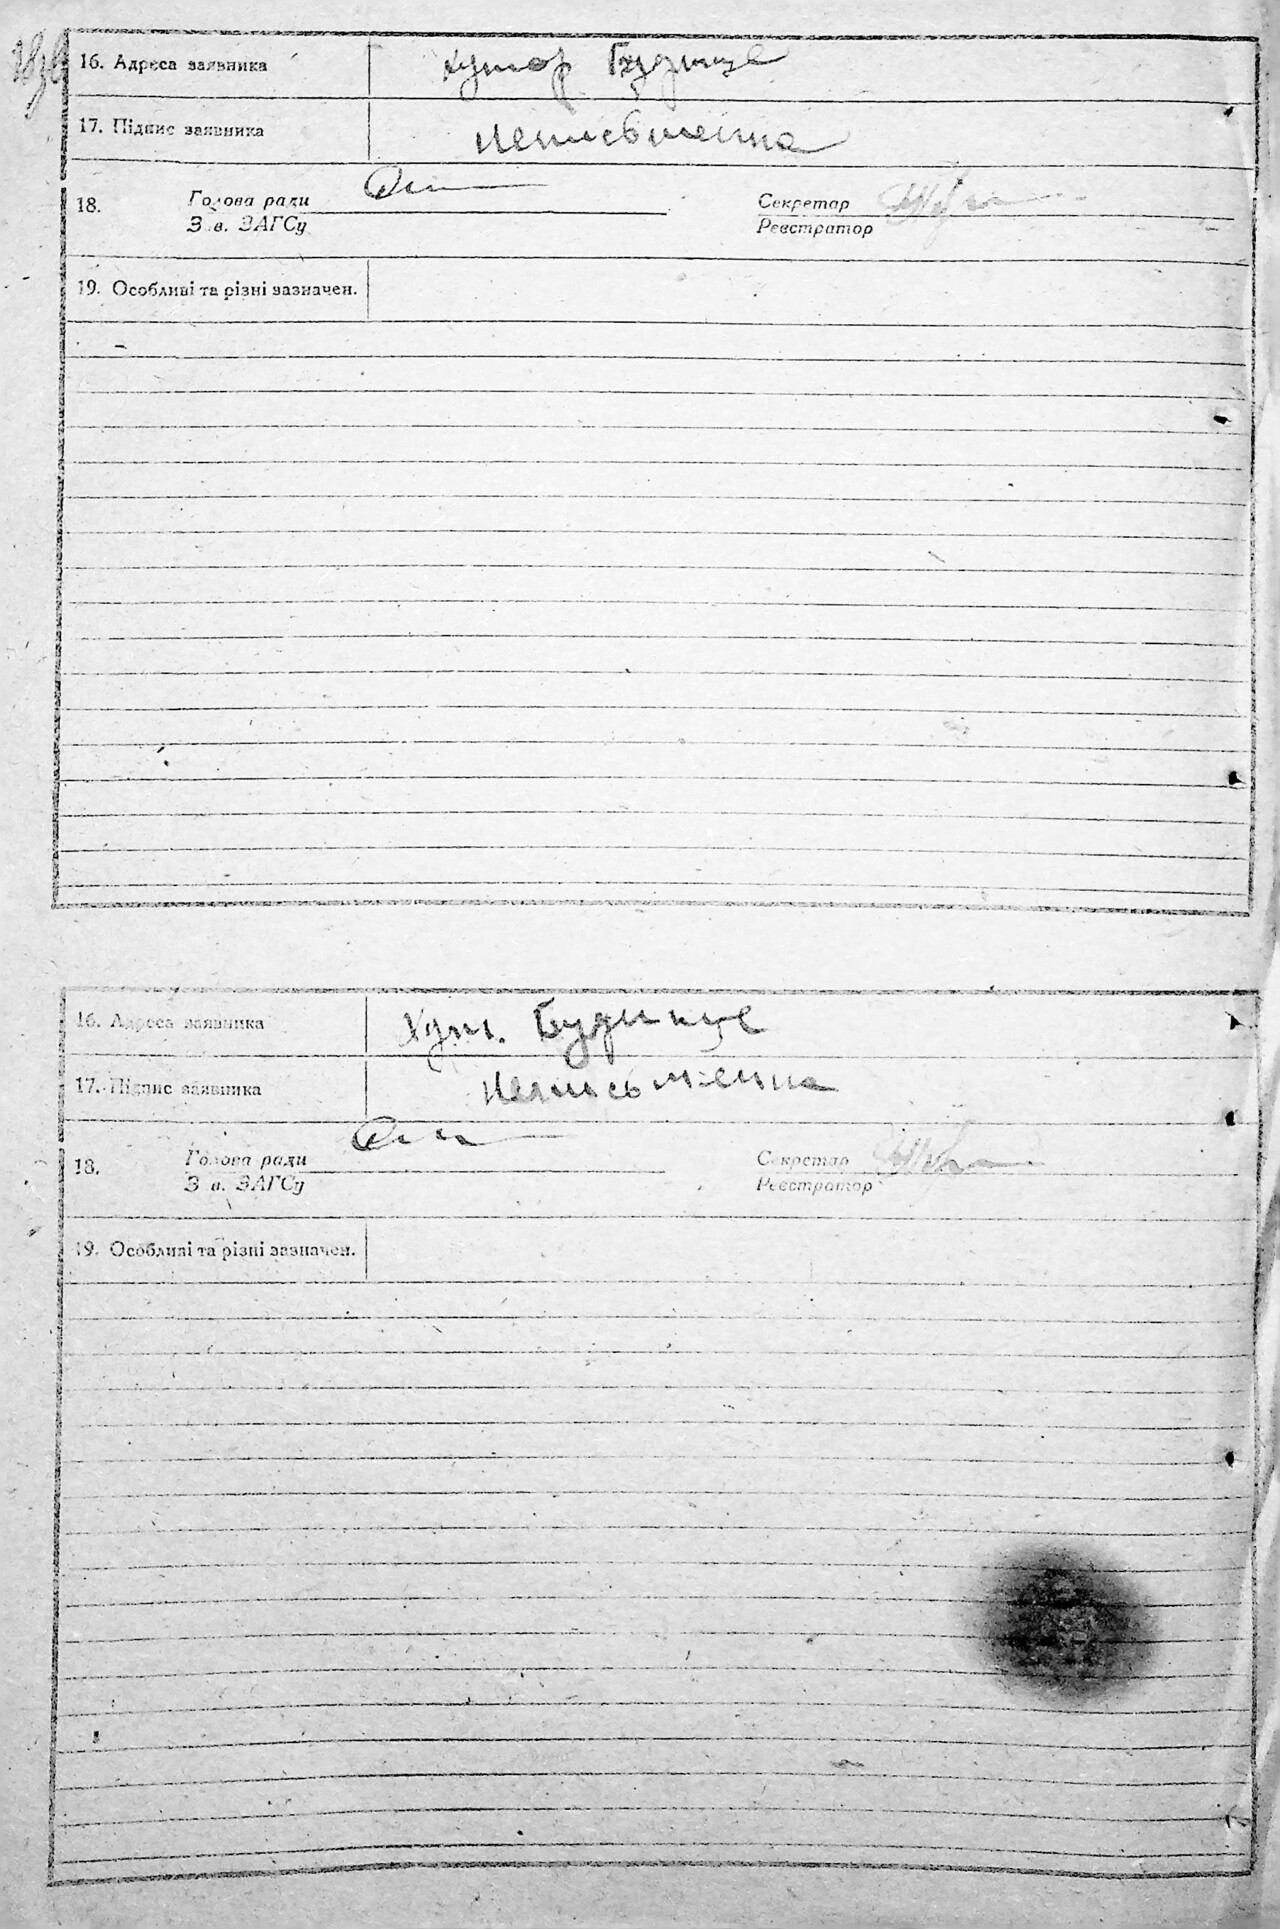 16. Адреса заявника хутор Будище
17. Підпис заявника Неписьменна
18. Голова ради Секретар
Зав. ЗАГСу Реєстратор
19. Особливі та різні зазначен.
16. Адреса заявника Хут. Будище
17. Підпис заявника Неписьменна
18. Голова ради Секретар
Зав. ЗАГСу Реєстратор
19. Особливі та різні зазначен.